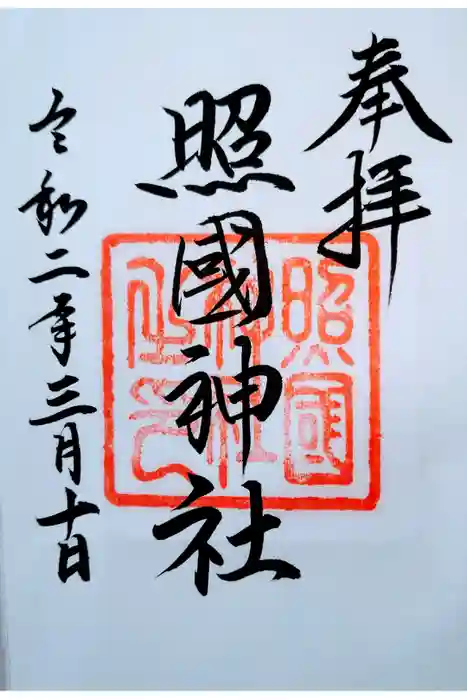 奉拝
照國神社
令和二年三月十日
照國
神社
之印